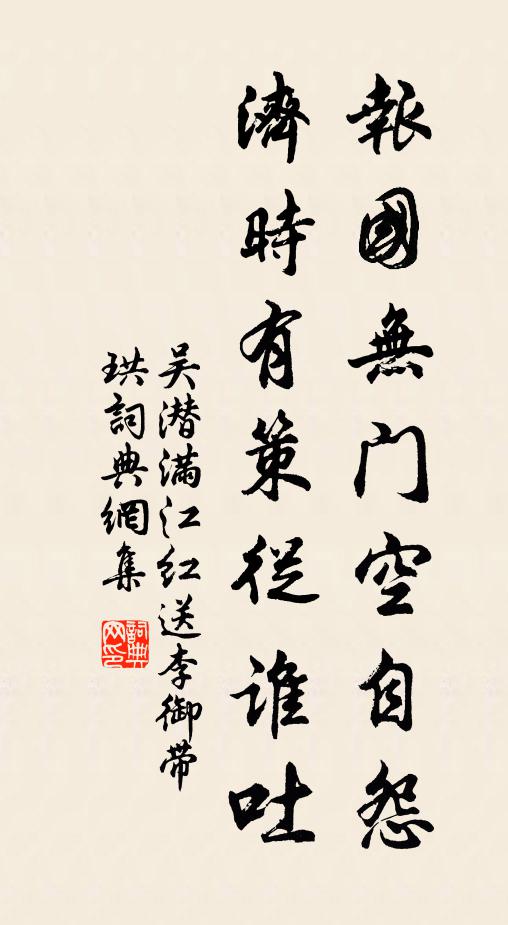 報國無门空自怨
濟時有策從誰吐
吴潜滿江红送李御带
珙詞典網集
詞典
网印